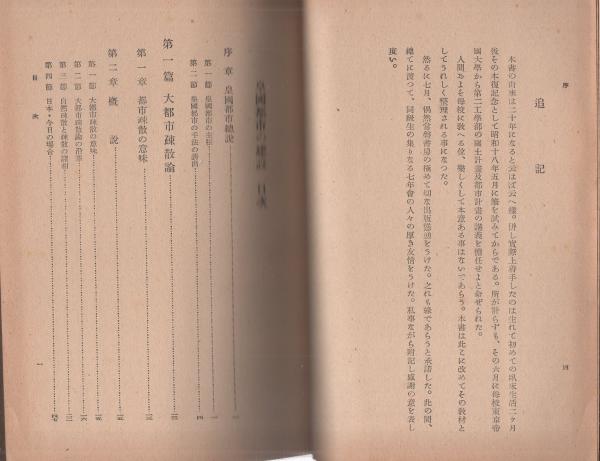 序
四
追記
本書の由來は二十年になると云はば云へ樣。併し實際上着手したのは生れて初めての臥床生活二ケ月
後その本復記念として昭和十八年五月に筆を試みてからである。所が計らずも、その六月に母校東京帝
國大學から第二工學部の國土計畫及都市計畫の講義を擔任せよと命ぜられた。
人間およそ母校に教へる位、樂しくして本意ある事はないであらう。本書は此こに改めてその教材と
してうれしく整理される事になつた。
然るに七月、偶然常磐書房の極めて切な出版慫慂をうけた。之れも緣であらうと承諾した。此の間、
總てに亙つて、同級生の集りなる七年會の人々の厚き友情をうけた。私事ながら附記し感謝の意を表し
度い。
皇國都市の建設 目次
序章 皇國都市總說
第一節 皇國都市の主張 一
第二節 皇國都市の手法の誘出 四
第一篇 大都市疎散論
第一章 都市疎散の意味
第二章 概說
第一節 大都市疎散の意味
第二節 大都市疎散論の沿革
第三節 自然疎散と疎散の諸相
第四節 日本・今日の場合
目次
一